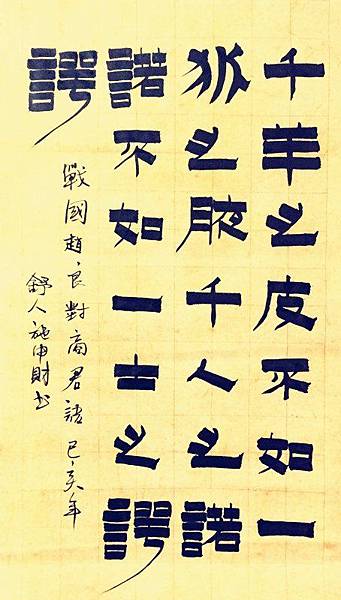 千羊之皮不如一
狐之腋千人之諾
諾不如一士之諤
諤
戰國趙良對商君語己亥年
人施申財书